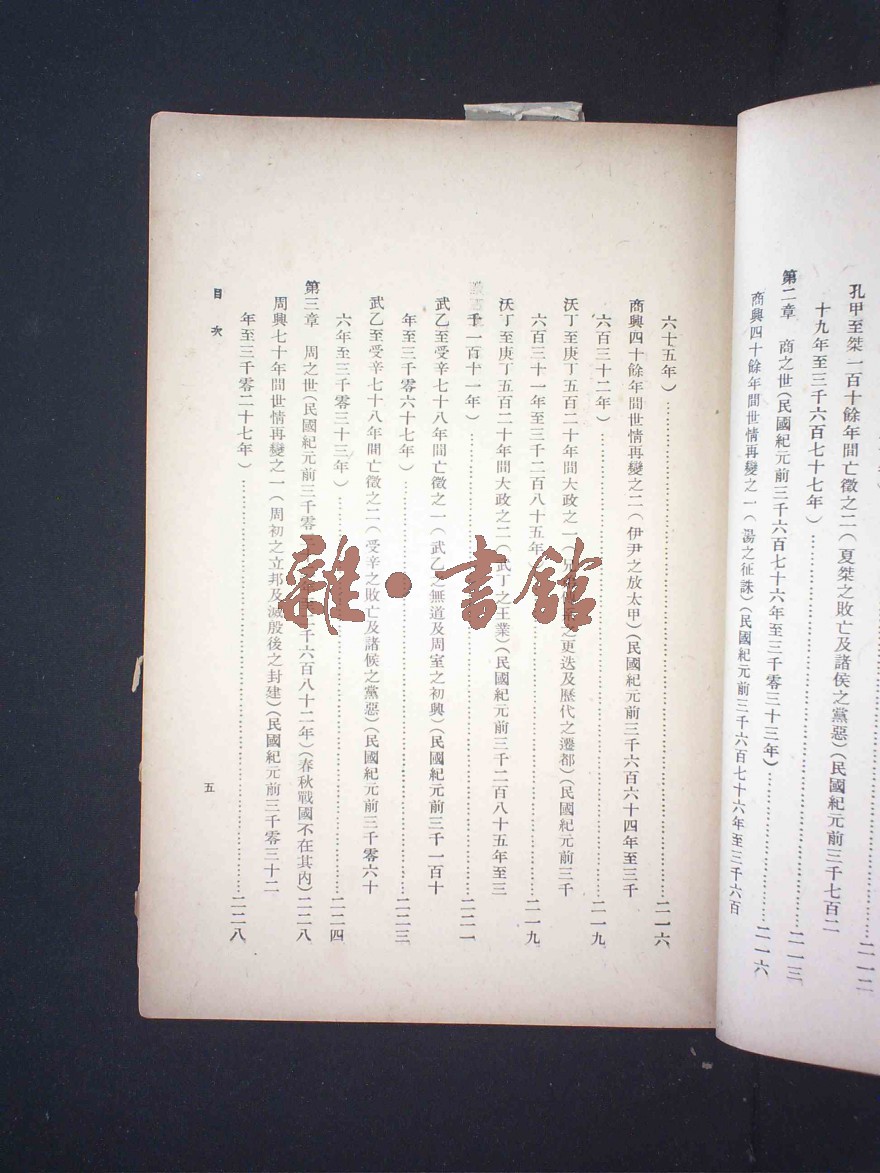 孔甲至桀一百十餘年間亡徵之二(夏桀之敗亡及諸侯之黨惡)(民國紀元前三千七百二
十九年至三千六百七十七年)……二一二
第二章 商之世(民國紀元前三千六百七十六年至三千零三十三年)……二一三
商興四十餘年間世情再變之一(湯之征誅)(民國紀元前三千六百七十六年至三千六百
……二一六
六十五年)……二一六
商興四十餘年間世情再變之二(伊尹之放太甲)(民國紀元前三千六百六十四年至三千
六百三十二年)……二一九
沃丁至庚丁五百二十年間大政之一(之更迭及歷代之遷都)(民國紀元前三千
六百三十一年至三千二百八十五年)……二一九
沃丁至庚丁五百二十年間大政之二(武丁之王業)(民國紀元前三千二百八十五年至三
千一百十一年)……二二一
武乙至受辛七十八年間亡徵之一(武乙之無道及周室之初興)(民國紀元前三千一百十
年至三千零六十七年)……二二三
武乙至受辛七十八年間亡徵之二(受辛之敗亡及諸侯之黨惡)(民國紀元前三千零六十
六年至三千零三十三年)……二二四
第三章 周之世(民國紀元前三千零千六百八十二年)(春秋戰國不在其內)二二八
周興七十年間世情再變之一(周初之立邦及滅殷後之封建)(民國紀元前三千零三十二
年至三千零二十七年)……二二八
目次
五
雜·書館